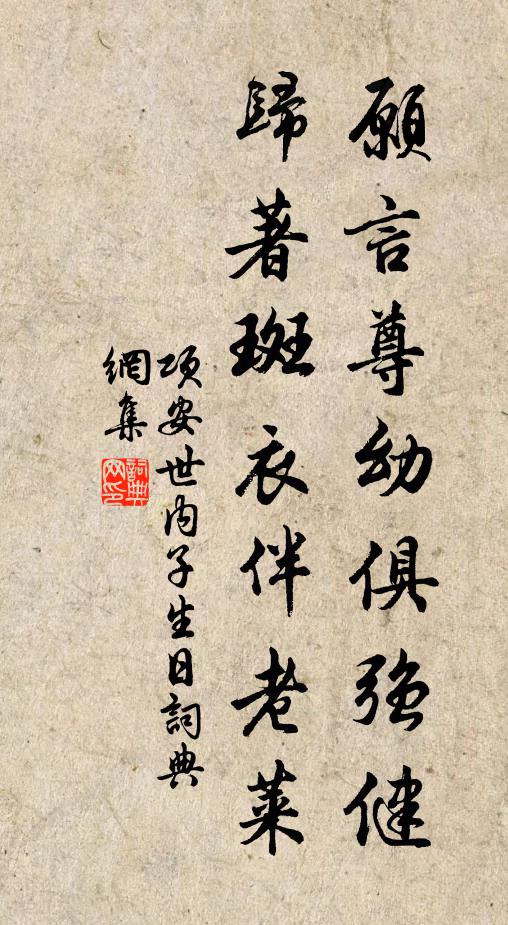 願言尊幼俱強健
歸著斑衣伴老萊
項安世內子生日詞典
網集
詞典
网印